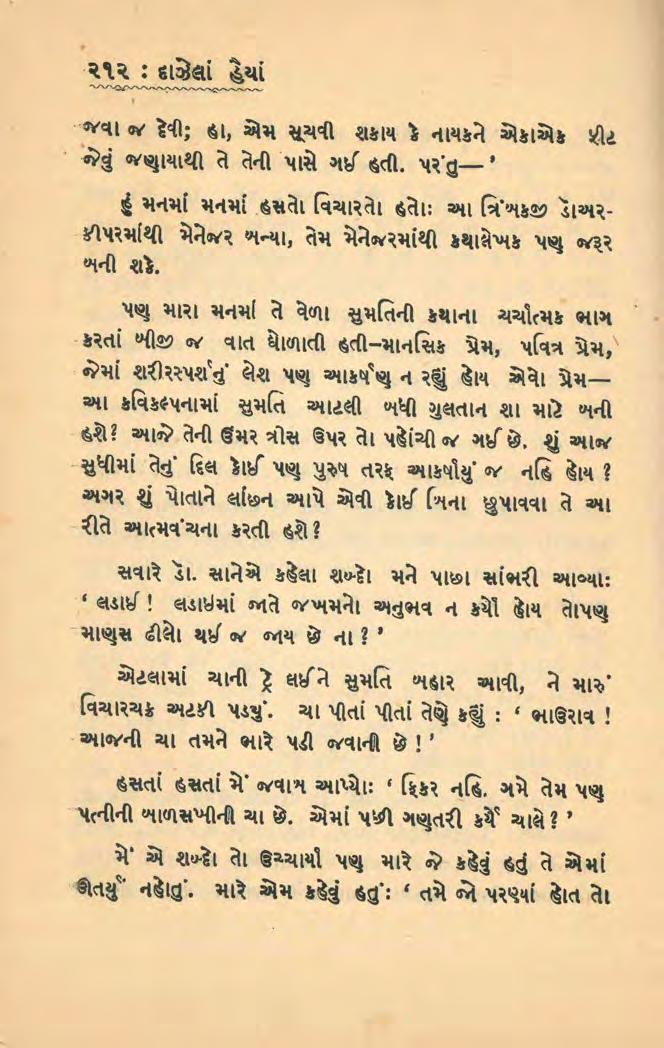 ૨૧૨ : દાઝેલાં હૈયાં
જવા જ દેવી; હા, એમ સૂચવી શકાય કે નાયકને એકાએક ફીટ
જેવું જણાયાથી તે તેની પાસે ગઈ હતી. પરંતુ—’
હું મનમાં મનમાં હસતો વિચારતો હતોઃ આ ત્રિંબકજી ડોઅર-
કીપરમાંથી મેનેજર બન્યા, તેમ મેનેજરમાંથી કથાલેખક પણ જરૂર
બની શકે.
પણ મારા મનમાં તે વેળા સુમતિની કથાના ચર્ચાત્મક ભાગ
કરતાં બીજી જ વાત ઘોળાતી હતી–માનસિક પ્રેમ, પવિત્ર પ્રેમ,
જેમાં શરીરસ્પર્શનું લેશ પણ આકર્ષણ ન રહ્યું હોય એવો પ્રેમ—
આ કવિકલ્પનામાં સુમતિ આટલી બધી ગુલતાન શા માટે બની
હશે? આજે તેની ઉંમર ત્રીસ ઉપર તો પહોંચી જ ગઈ છે. શું આજ
સુધીમાં તેનું દિલ કોઈ પણ પુરુષ તરફ આકર્ષાયું જ નહિ હોય ?
અગર શું પોતાને લાંછન આપે એવી કોઈ બિના છુપાવવા તે આ
રીતે આત્મવંચના કરતી હશે?
સવારે ડૉ. સાનેએ કહેલા શબ્દો મને પાછા સાંભરી આવ્યાઃ
‘ લડાઈ ! લડાઇમાં જાતે જખમનો અનુભવ ન કર્યો હોય તોપણ
માણુસ ઢીલો થઈ જ જાય છે ના ? ’
એટલામાં ચાની ટ્રે લઈને સુમતિ બહાર આવી, ને મારું
વિચારચક્ર અટકી પડયું. ચા પીતાં પીતાં તેણે કહ્યું : ‘ ભાઉરાવ !
આજની ચા તમને ભારે પડી જવાની છે ! ’
હસતાં હસતાં મેં જવાબ આપ્યોઃ ‘ ફિકર નહિ. ગમે તેમ પણ
પત્નીની બાળસખીની ચા છે. એમાં પછી ગણતરી કર્યે ચાલે ? ’
મેં એ શબ્દો તો ઉચ્ચાર્યા પણ મારે જે કહેવું હતું તે એમાં
ઊતર્યું નહોતું. મારે એમ કહેવું હતુંઃ ‘ તમે જો પરણ્યાં હોત તો